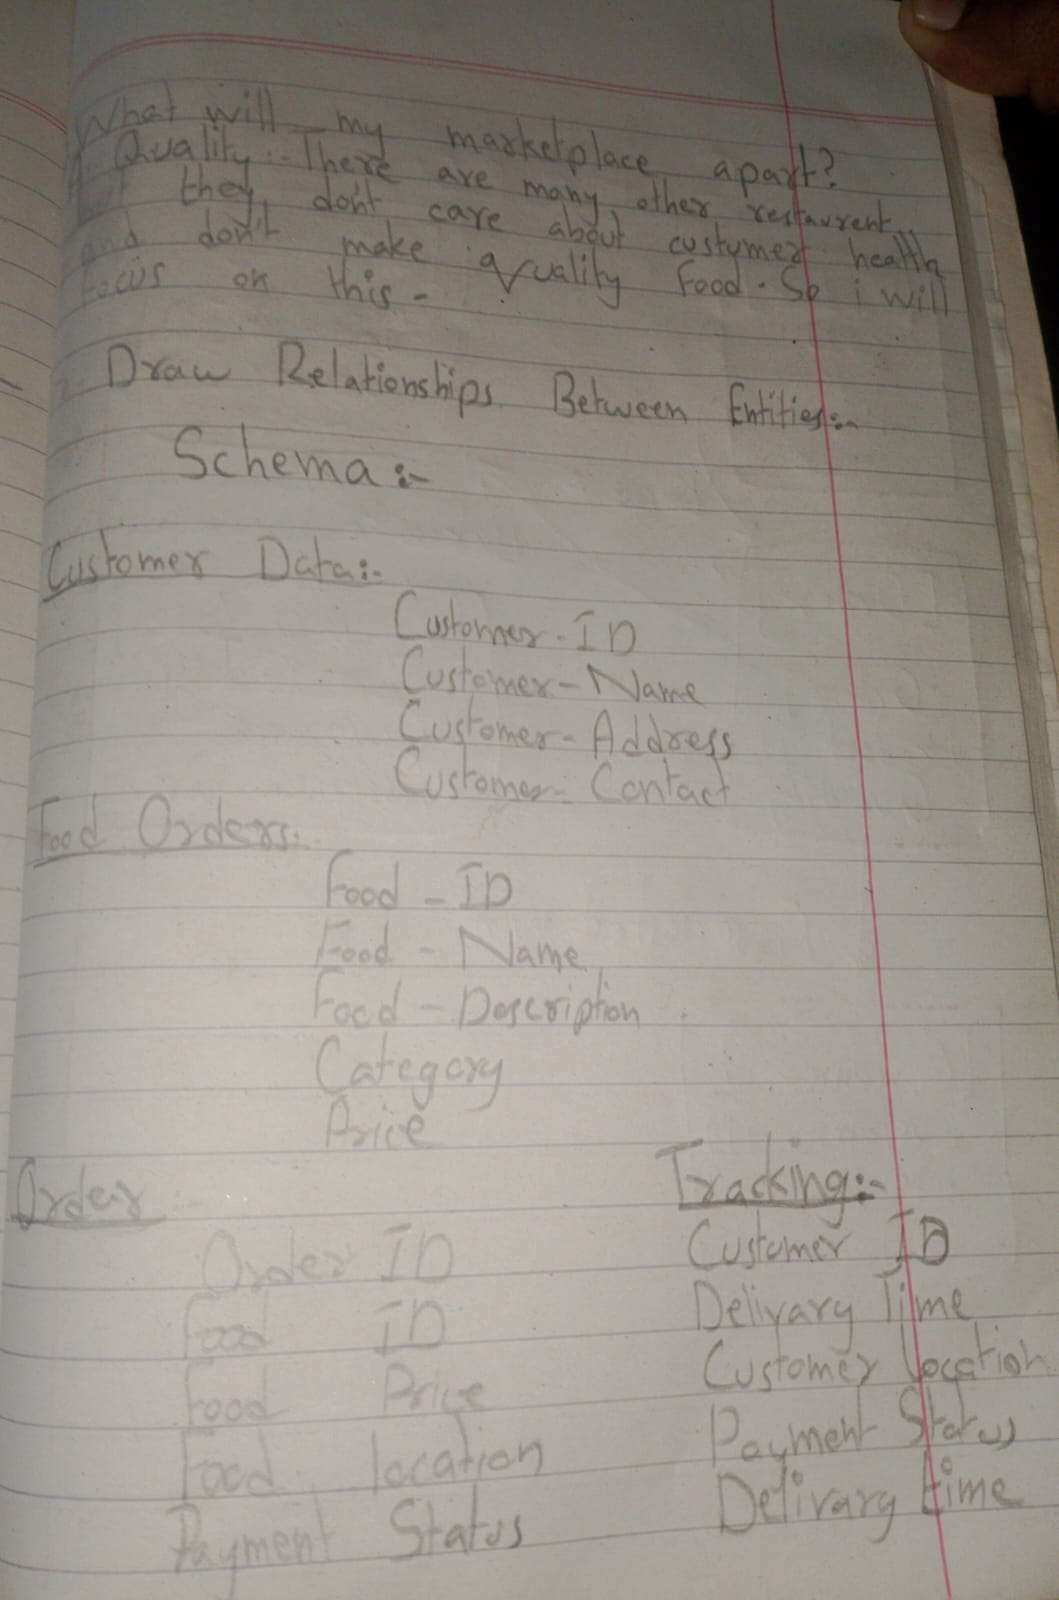 What will my marketplace apart?
Quality:- There are many other restaurent
they don't care about custymer health
and don't make quality Food. So i will
Focus on this-
Draw Relationships Between Entities:-
Schema:-
Customer Data:-
Customer-ID
Customer-Name
Customer-Address
Customer-Contact
Food Orders:
Food-ID
Food-Name
Food-Description
Category
Price
Order
Order ID
Food ID
Food Price
Food location
Payment Status
Tracking:-
Customer ID
Delivary Time
Customer location
Payment Status
Delivary time